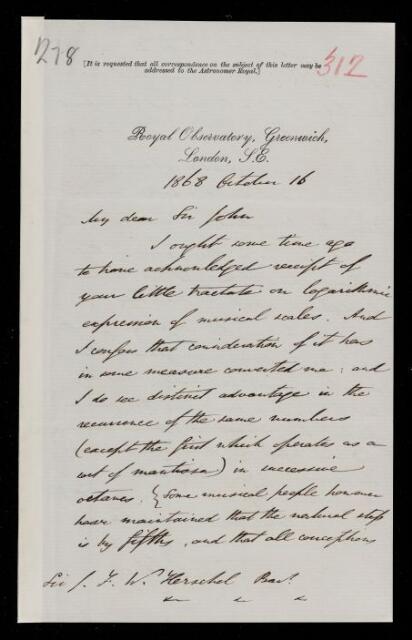 278
312
[It is requested that all correspondence on the subject of this letter may be
addressed to the Astronomer Royal.]
Royal Observatory, Greenwich,
London, S.E.
1868 October 16
My dear Sir John
I ought some time ago
to have acknowledged receipt of
your little tractate on logarithmic
expression of musical scales. And
I confess that consideration of it has
in some measure converted me: and
I do see distinct advantage in the
recurrence of the same numbers
(except the first which operates as a
sort of mantissa) in successive
octaves. {Some musical people however
have maintained that the natural step
is by fifths, and that all conceptions
Sir J. F. W. Herschel Bart.